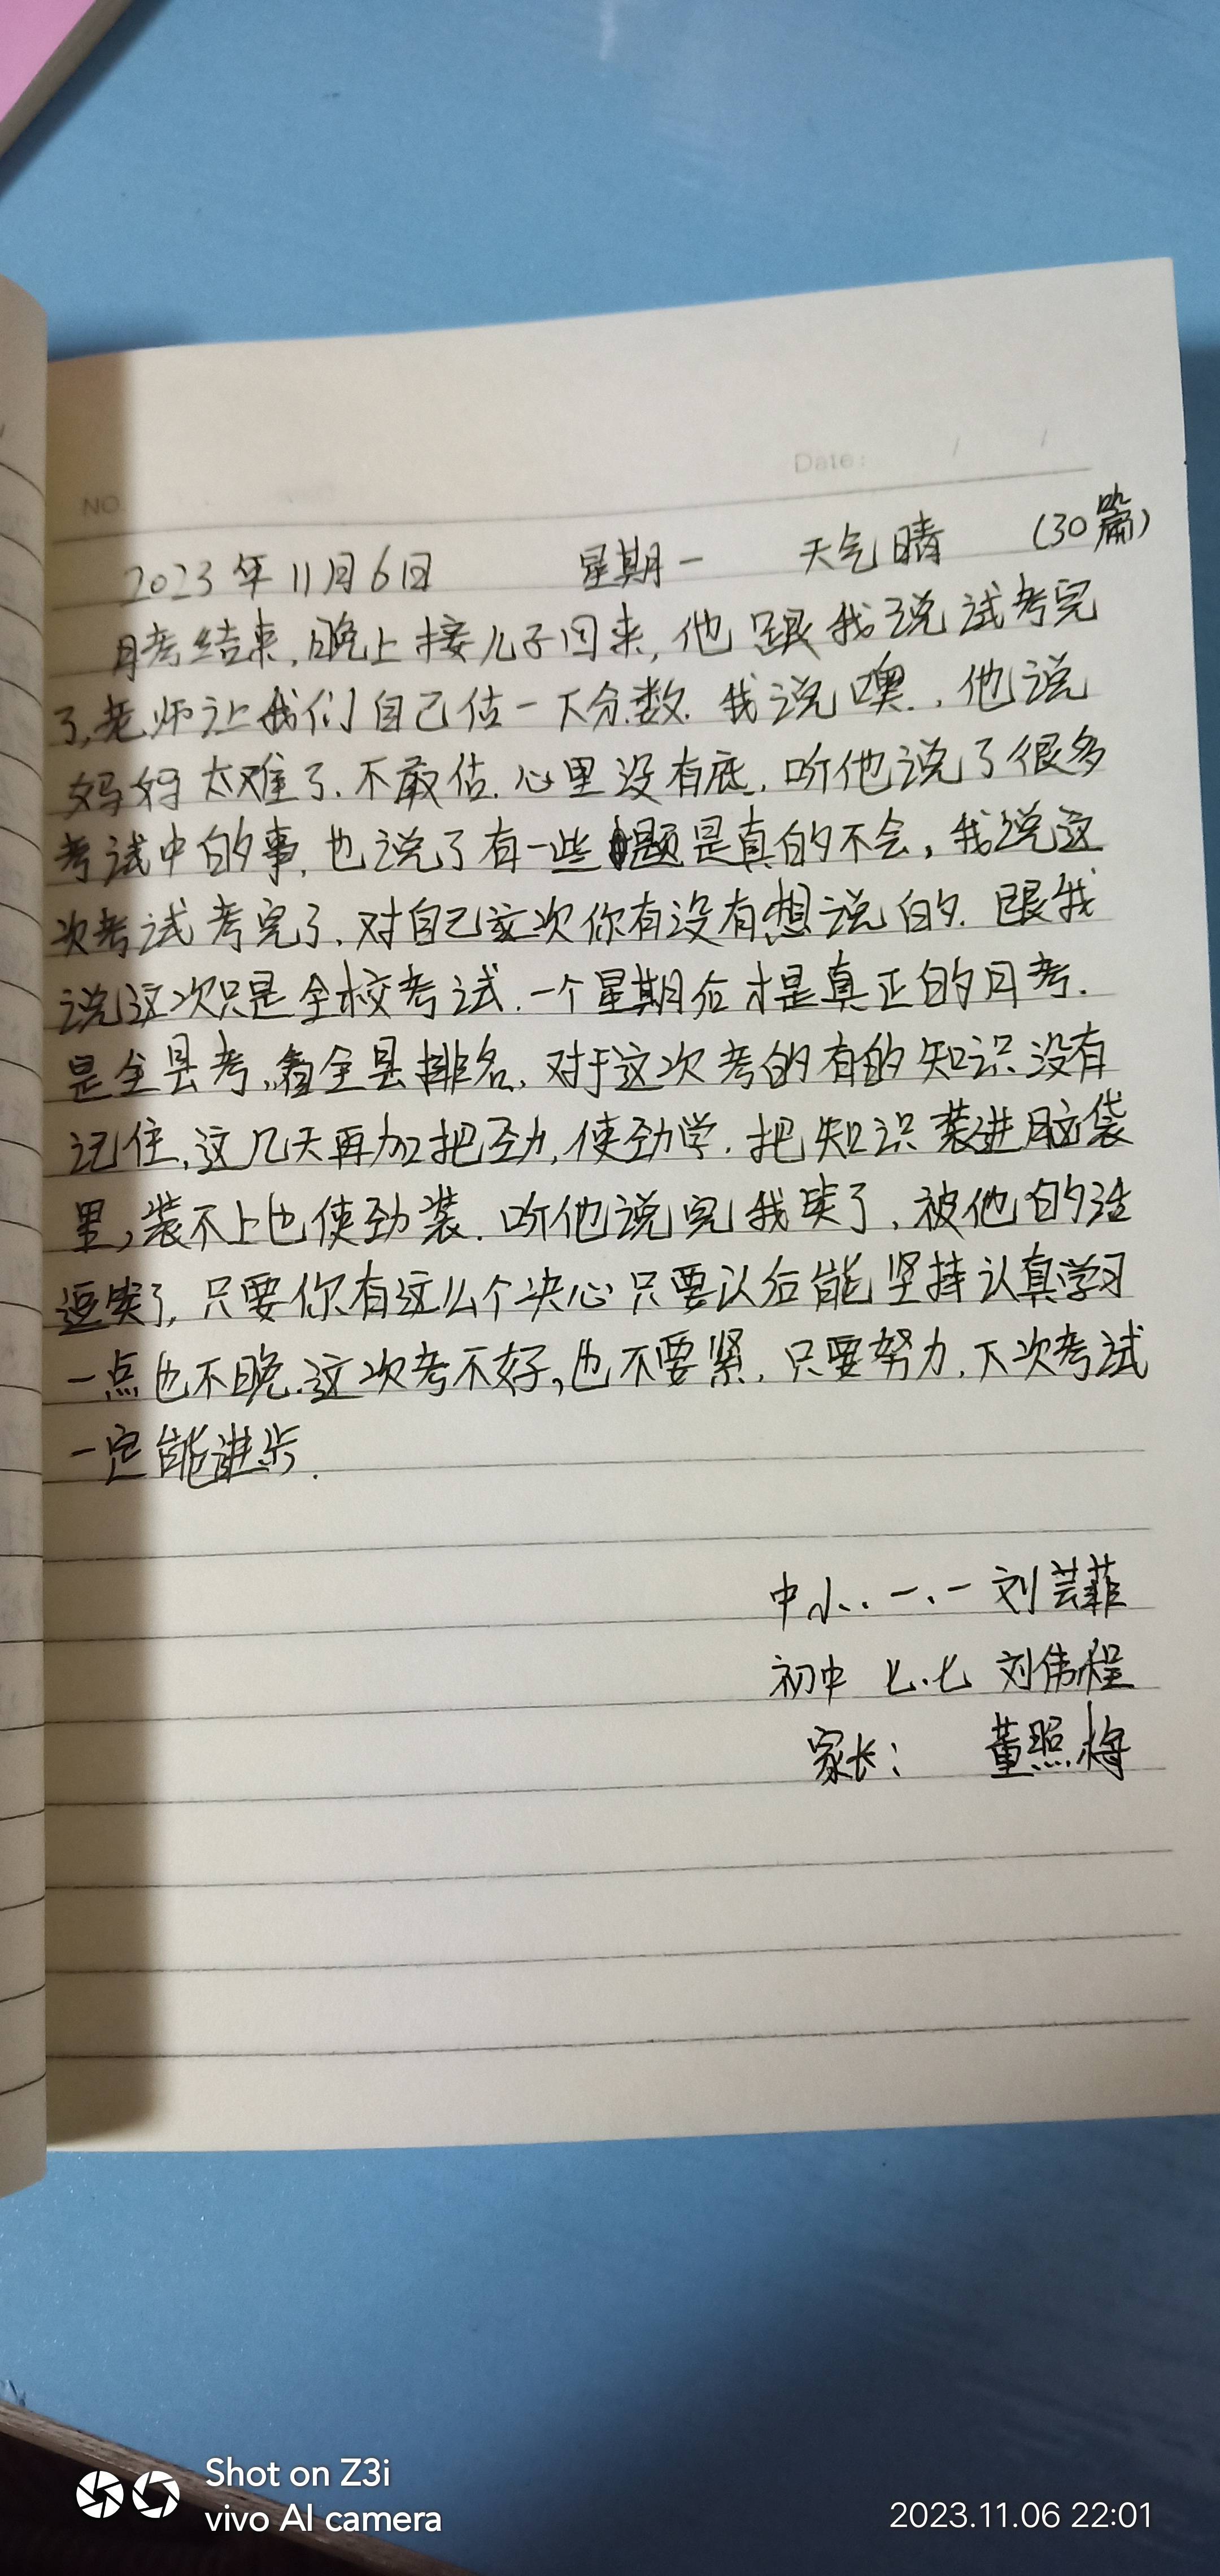 NO.
Date: / /
2023年11月6日 星期一 天气晴 (30篇)
月考结束,晚上接儿子回来,他跟我说试考完
了,老师让我们自己估一下分数.我说噢.,他说
妈妈太难了.不敢估.心里没有底.听他说了很多
考试中的事,也说了有一些题是真的不会,我说这
次考试考完了,对自己这次你有没有想说的.跟我
说这次只是全校考试.一个星期后才是真正的月考.
是全县考,看全县排名,对于这次考的有的知识没有
记住,这几天再加把劲,使劲学.把知识装进脑袋
里,装不上也使劲装.听他说完我笑了,被他的话
逗笑了,只要你有这么个决心只要以后能坚持认真学习
一点也不晚.这次考不好,也不要紧.只要努力,下次考试
一定能进步.
中小.一.一 刘芸菲
初中 七.七 刘伟程
家长: 董照梅
Shot on Z3i
vivo AI camera
2023.11.06 22:01